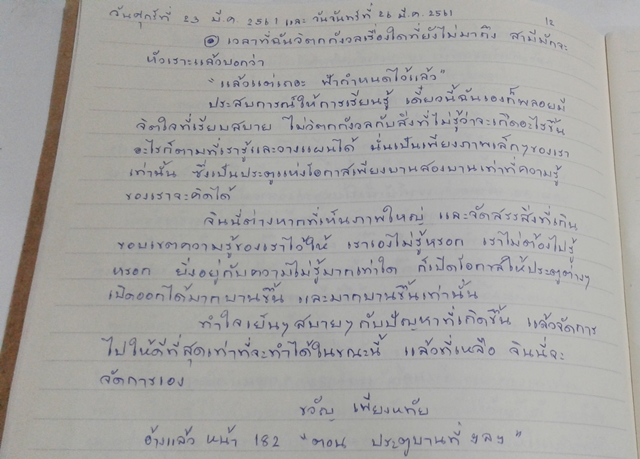 วันศุกร์ที่ 23 มี.ค. 2561 และ วันจันทร์ที่ 26 มี.ค. 2561
12
เวลาที่ฉันวิตกกังวลเรื่องใดที่ยังไม่มาถึง สามีมักจะ
หัวเราะแล้วบอกว่า
"แล้วแต่เถอะ ฟ้ากำหนดไว้แล้ว"
ประสบการณ์ให้การเรียนรู้ เดี๋ยวนี้ฉันเองก็พลอยมี
จิตใจที่เรียบสบาย ไม่วิตกกังวลกับสิ่งที่ไม่รู้ว่าจะเกิดอะไรขึ้น
อะไรก็ตามที่เรารู้และวางแผนได้ นั่นเป็นเพียงภาพเล็กๆของเรา
เท่านั้น ซึ่งเป็นประตูแห่งโอกาสเพียงบานสองบานเท่าที่ความรู้
ของเราจะคิดได้
จินนี่ต่างหากที่เห็นภาพใหญ่ และจัดสรรสิ่งที่เกิน
ขอบเขตความรู้ของเราไว้ให้ เราเองไม่รู้หรอก เราไม่ต้องไปรู้
หรอก ยิ่งอยู่กับความไม่รู้มากเท่าใด ก็เปิดโอกาสให้ประตูต่างๆ
เปิดออกได้มากบานขึ้น และมากบานขึ้นเท่านั้น
ทำใจเย็นๆ สบายๆ กับปัญหาที่เกิดขึ้น แล้วจัดการ
ไปให้ดีที่สุดเท่าที่จะทำได้ในขณะนี้ แล้วที่เหลือ จินนี่จะ
จัดการเอง
ขวัญ เพียงหทัย
อ้างแล้ว หน้า 182 "ตอน ประตูบานที่ ฯลฯ"